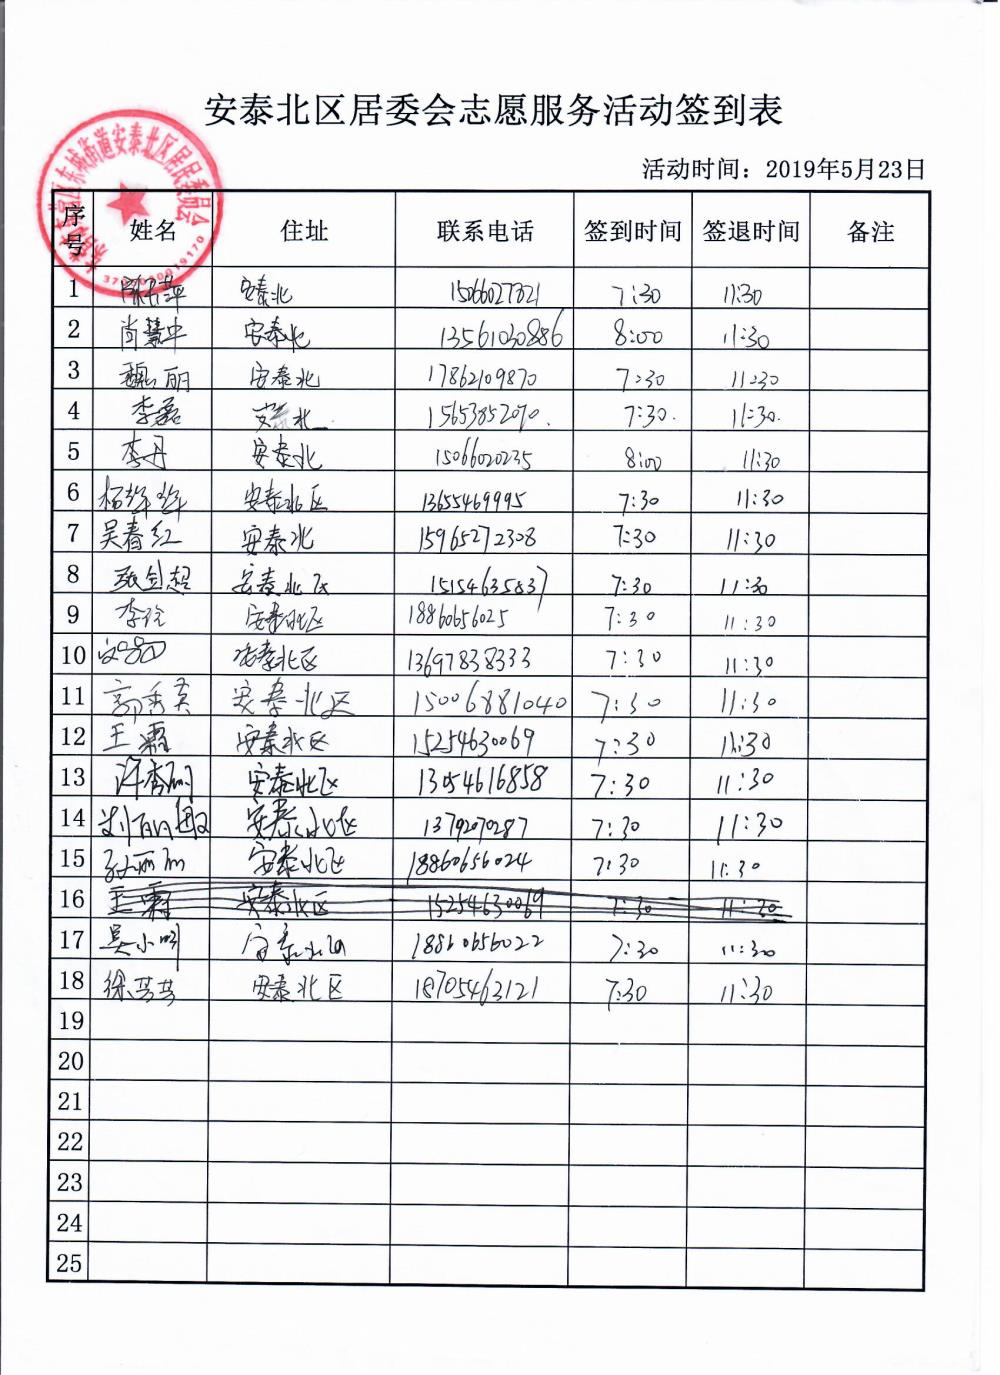 安泰北区居委会志愿服务活动签到表
活动时间：2019年5月23日
序号 姓名 住址 联系电话 签到时间 签退时间 备注
1 安泰北 15066027321 7:30 11:30
2 肖慧中 安泰北 13561030886 8:00 11:30
3 魏丽 安泰北 17862109870 7:30 11:30
4 李磊 安泰北 15653852070. 7:30. 11:30.
5 李丹 安泰北 15066020235 8:00 11:30
6 杨 安泰北区 13655469995 7:30 11:30
7 吴春红 安泰北 15965272308 7:30 11:30
8 张剑超 安泰北区 15154635837 7:30 11:30
9 李 安泰北区 18860656025 7:30 11:30
10 安泰北区 13697838333 7:30 11:30
11 郭秀英 安泰北区 15006881040 7:30 11:30
12 王霜 安泰北区 15254630069 7:30 11:30
13 许秀丽 安泰北区 13054616858 7:30 11:30
14 刘 安泰北区 13792070287 7:30 11:30
15 孙丽丽 安泰北区 18860656024 7:30 11:30
16 王霜 安泰北区 15254630069 7:30 11:30
17 吴小明 安泰北区 18860656022 7:30 11:30
18 徐芳芳 安泰北区 18705463121 7:30 11:30
19
20
21
22
23
24
25
东城街道安泰北区居民委员会